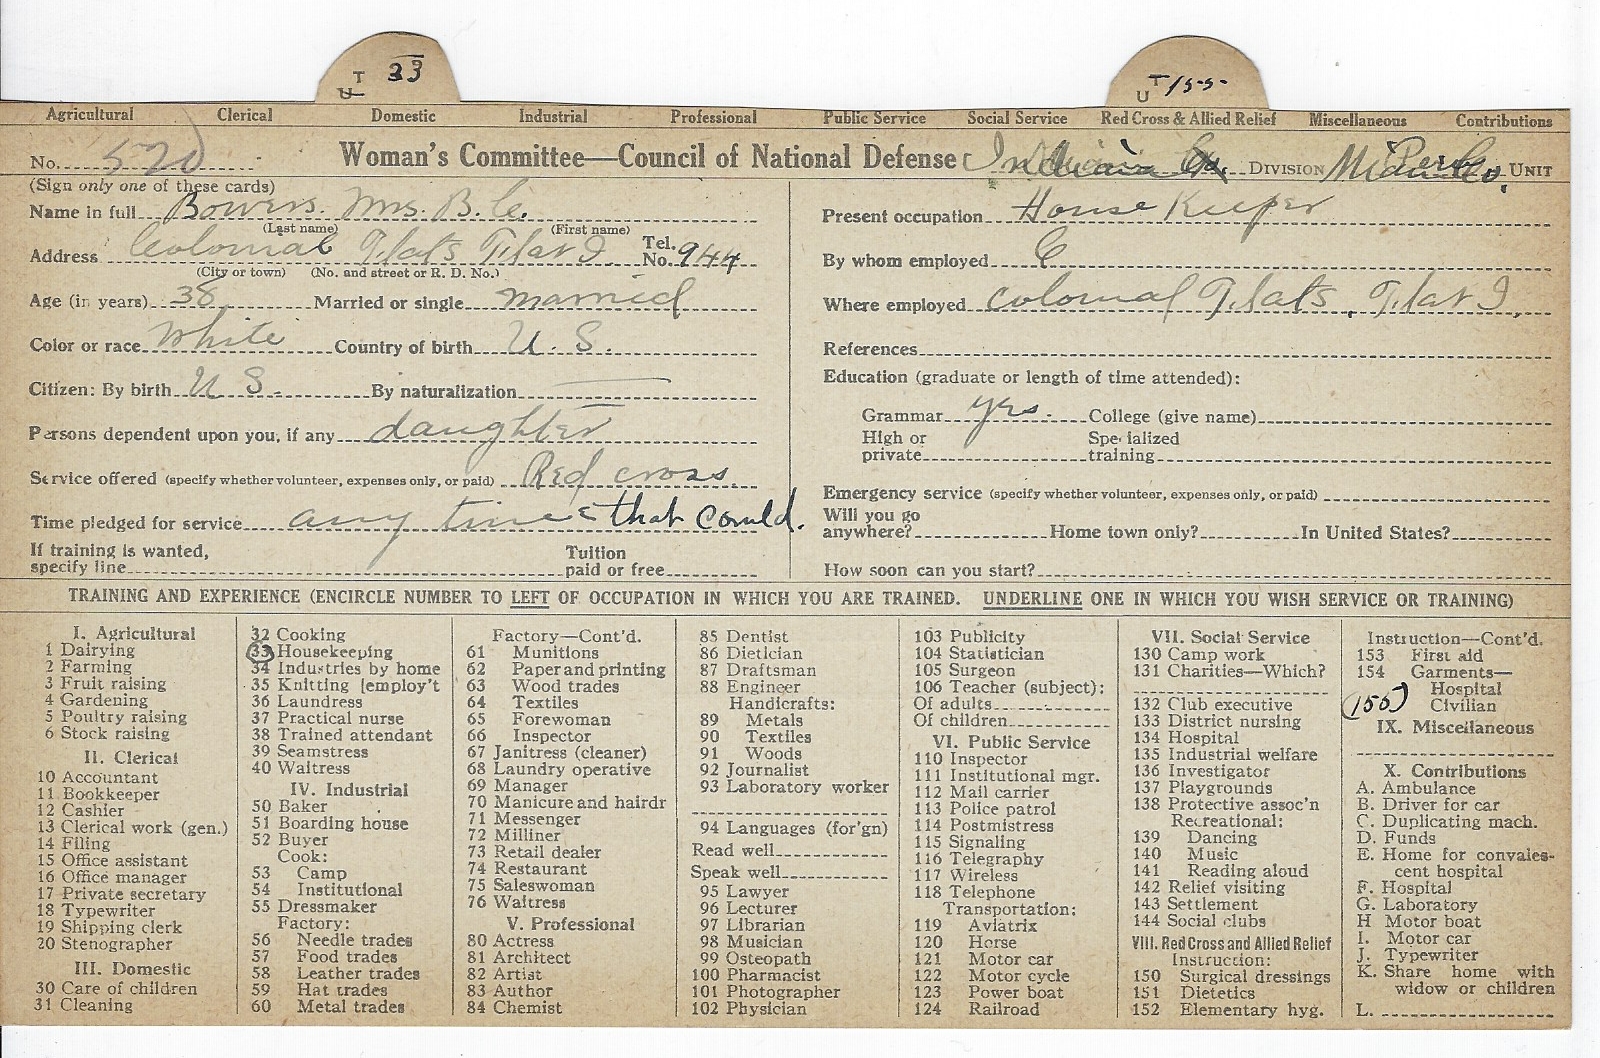 T
U 33
T
U 155
Agricultural Clerical Domestic Industrial Professional Public Service Social Service Red Cross & Allied Relief Miscellaneous Contributions
No. 520 Woman's Committee—Council of National Defense Indiana DIVISION UNIT
(Sign only one of these cards)
Name in full Bowers. Mrs. B. C.
(Last name) (First name)
Address Colonial Flats Flat I Tel. No. 944
(City or town) (No. and street or R. D. No.)
Age (in years) 38 Married or single married
Color or race White Country of birth U. S.
Citizen: By birth U S. By naturalization —
Persons dependent upon you, if any daughter
Service offered (specify whether volunteer, expenses only, or paid) Red cross.
Time pledged for service any time that could.
If training is wanted, specify line Tuition paid or free
Present occupation House Keeper
By whom employed
Where employed Colonial Flats, Flat I,
References
Education (graduate or length of time attended):
Grammar yes. College (give name)
High or private Specialized training
Emergency service (specify whether volunteer, expenses only, or paid)
Will you go anywhere? Home town only? In United States?
How soon can you start?
TRAINING AND EXPERIENCE (ENCIRCLE NUMBER TO LEFT OF OCCUPATION IN WHICH YOU ARE TRAINED. UNDERLINE ONE IN WHICH YOU WISH SERVICE OR TRAINING)
I. Agricultural
1 Dairying
2 Farming
3 Fruit raising
4 Gardening
5 Poultry raising
6 Stock raising
II. Clerical
10 Accountant
11 Bookkeeper
12 Cashier
13 Clerical work (gen.)
14 Filing
15 Office assistant
16 Office manager
17 Private secretary
18 Typewriter
19 Shipping clerk
20 Stenographer
III. Domestic
30 Care of children
31 Cleaning
32 Cooking
33 Housekeeping
34 Industries by home
35 Knitting [employ't
36 Laundress
37 Practical nurse
38 Trained attendant
39 Seamstress
40 Waitress
IV. Industrial
50 Baker
51 Boarding house
52 Buyer
Cook:
53 Camp
54 Institutional
55 Dressmaker
Factory:
56 Needle trades
57 Food trades
58 Leather trades
59 Hat trades
60 Metal trades
Factory—Cont'd.
61 Munitions
62 Paper and printing
63 Wood trades
64 Textiles
65 Forewoman
66 Inspector
67 Janitress (cleaner)
68 Laundry operative
69 Manager
70 Manicure and hairdr
71 Messenger
72 Milliner
73 Retail dealer
74 Restaurant
75 Saleswoman
76 Waitress
V. Professional
80 Actress
81 Architect
82 Artist
83 Author
84 Chemist
85 Dentist
86 Dietician
87 Draftsman
88 Engineer
Handicrafts:
89 Metals
90 Textiles
91 Woods
92 Journalist
93 Laboratory worker
94 Languages (for'gn)
Read well
Speak well
95 Lawyer
96 Lecturer
97 Librarian
98 Musician
99 Osteopath
100 Pharmacist
101 Photographer
102 Physician
103 Publicity
104 Statistician
105 Surgeon
106 Teacher (subject):
Of adults
Of children
VI. Public Service
110 Inspector
111 Institutional mgr.
112 Mail carrier
113 Police patrol
114 Postmistress
115 Signaling
116 Telegraphy
117 Wireless
118 Telephone
Transportation:
119 Aviatrix
120 Horse
121 Motor car
122 Motor cycle
123 Power boat
124 Railroad
VII. Social Service
130 Camp work
131 Charities—Which?
132 Club executive
133 District nursing
134 Hospital
135 Industrial welfare
136 Investigator
137 Playgrounds
138 Protective assoc'n
Recreational:
139 Dancing
140 Music
141 Reading aloud
142 Relief visiting
143 Settlement
144 Social clubs
VIII. Red Cross and Allied Relief
Instruction:
150 Surgical dressings
151 Dietetics
152 Elementary hyg.
Instruction—Cont'd.
153 First aid
154 Garments—
Hospital
(155) Civilian
IX. Miscellaneous
X. Contributions
A. Ambulance
B. Driver for car
C. Duplicating mach.
D. Funds
E. Home for convales-
cent hospital
F. Hospital
G. Laboratory
H Motor boat
I. Motor car
J. Typewriter
K. Share home with
widow or children
L.